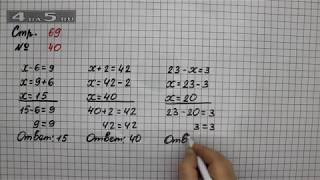 4 на 5.ru
Стр. 69
№ 40
x-6=9
x=9+6
x=15
15-6=9
9=9
Ответ: 15
x+2=42
x=42-2
x=40
40+2=42
42=42
Ответ: 40
23-x=3
x=23-3
x=20
23-20=3
3=3
Отв